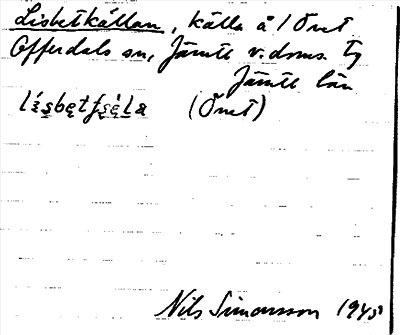 Lisbetkällan, källa å / Önet
Offerdals sn, Jämtl v. doms. tg
Jämtl län
(Önet)
Nils Simonsson 1945